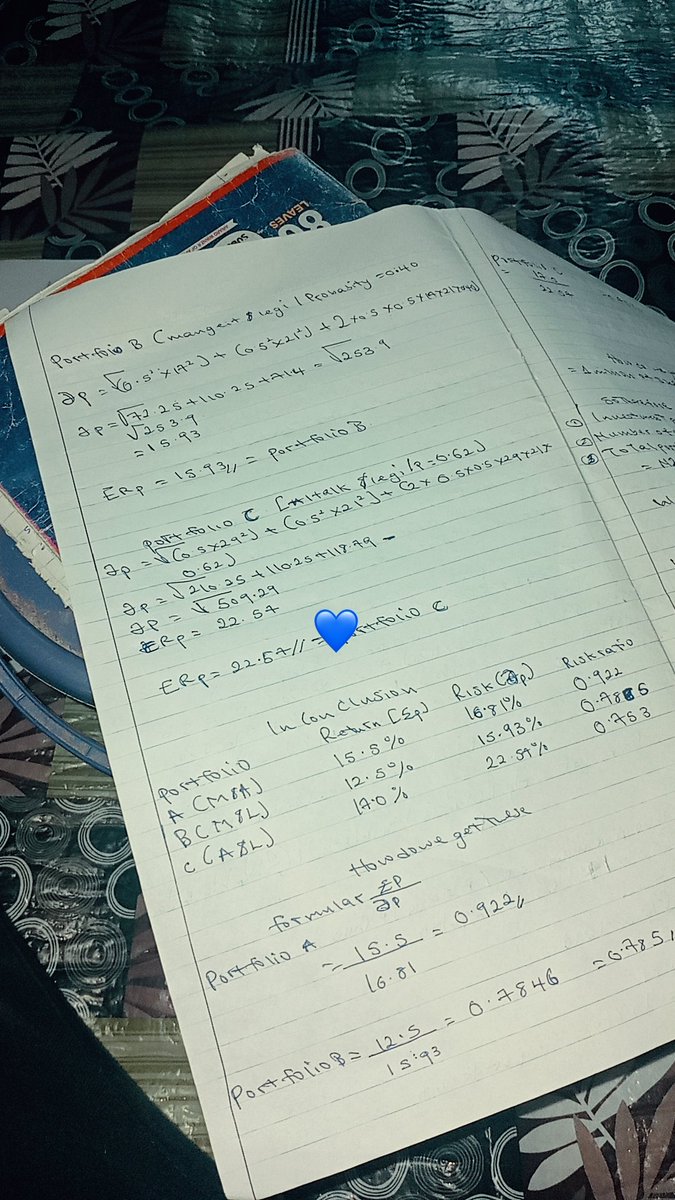 80
LEAVES
Portfolio B (mangent & legi / Provasity = 0.40
∂p = √(0.5² x 17²) + (0.5² x 21²) + 2 x 0.5 x 0.5 x 17 x 21 x 0.40)
∂p = √72.25 + 110.25 + 714 = √253.9
√253.9
= 15.93
ERp = 15.93// = Portfolio B
Portfolio C [Altalk & legi / R = 0.62)
∂p = √(0.5 x 29²) + (0.5² x 21²) + (2 x 0.5 x 0.5 x 29 x 21 x
0.62)
∂p = √210.25 + 110.25 + 118.79 -
∂p = √509.29
ERp = 22.57
ERp = 22.57// = Portfolio C
In Conclusion
Portfolio Return (Σp) Risk (∂p) Risk ratio
A (M&A) 15.5% 16.81% 0.922
B (M&L) 12.5% 15.93% 0.785
C (A&L) 17.0% 22.57% 0.753
How do we get these
formular Σp
∂p
Portfolio A
= 15.5 = 0.922//
16.81
Portfolio B = 12.5 = 0.7846 = 0.785//
15.93
Portfolio C
= 17.0
22.57
①
② Number of
③ Total